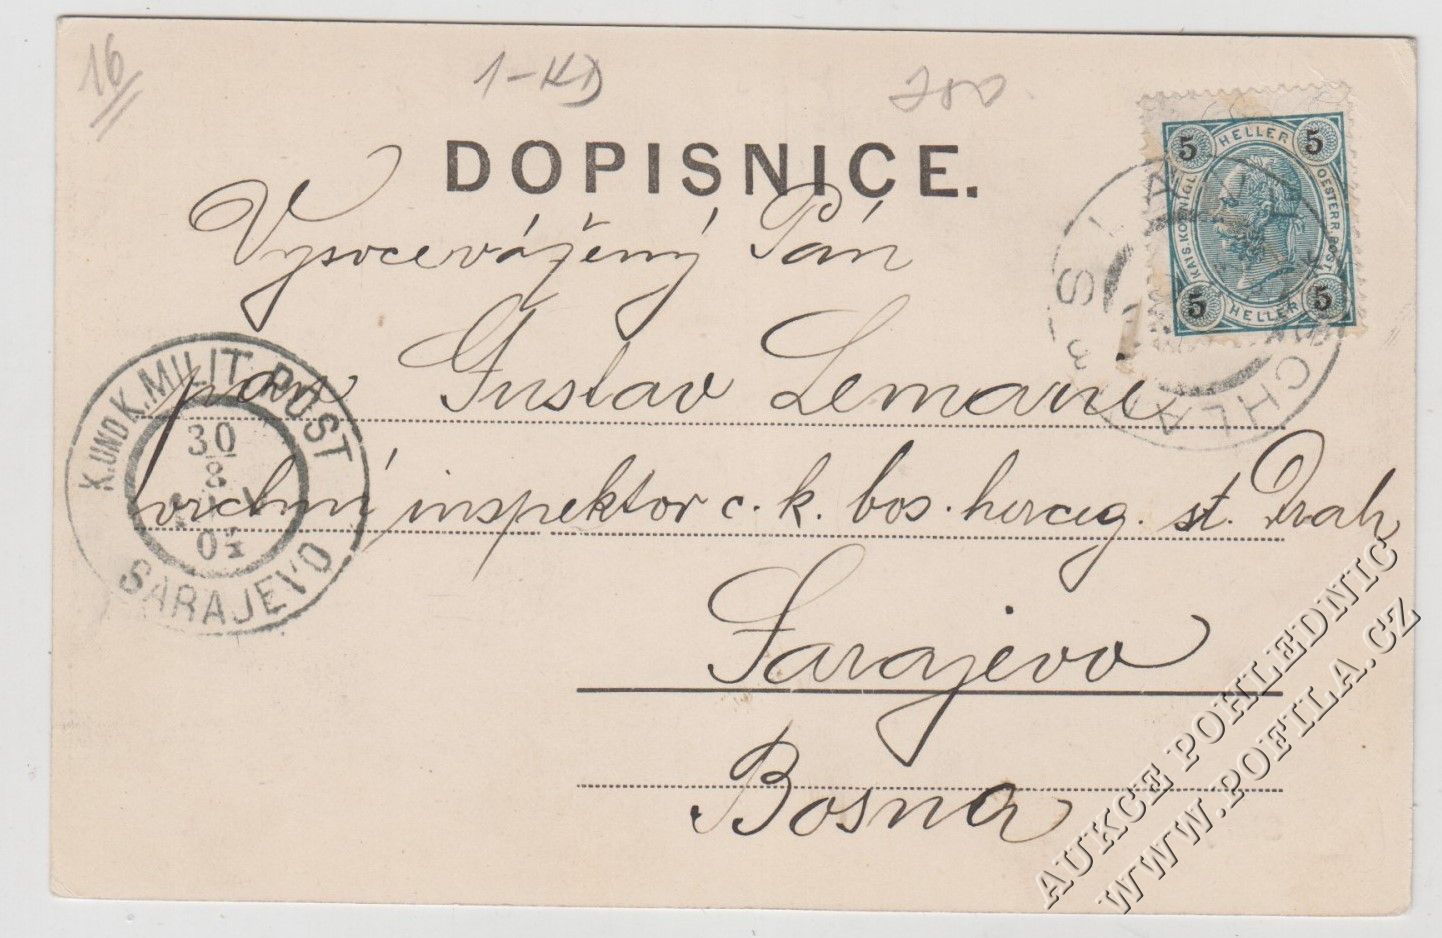 16
1-KD
700
DOPISNICE.
5 HELLER 5
KAIS. KÖNIGL. OESTERR. POST
5 HELLER 5
Vysocevážený Pán
pan Gustav Lemarie
K. UND K. MILIT. POST
30
8
05
SARAJEVO
vrchní inspektor c. k. bos. herceg. st. Drah
Sarajevo
Bosna
AUKCE POHLEDNIC
WWW.POFILA.CZ